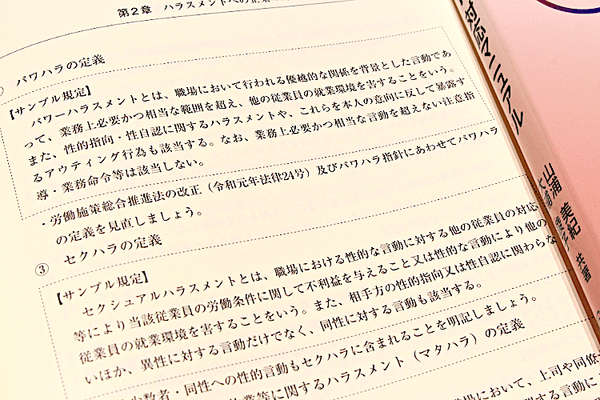 第2章 ハラスメントへの企業
パワハラの定義
【サンプル規定】
パワーハラスメントとは、職場において行われる優越的な関係を背景とした言動であ
って、業務上必要かつ相当な範囲を超え、他の従業員の就業環境を害することをいう。
また、性的指向・性自認に関するハラスメントや、これらを本人の意向に反して暴露す
るアウティング行為も該当する。なお、業務上必要かつ相当な言動を超えない注意指
導・業務命令等は該当しない。
・労働施策総合推進法の改正（令和元年法律24号）及びパワハラ指針にあわせてパワハラ
の定義を見直しましょう。
③ セクハラの定義
【サンプル規定】
セクシュアルハラスメントとは、職場における性的な言動に対する他の従業員の対応
等により当該従業員の労働条件に関して不利益を与えること又は性的な言動により他の
従業員の就業環境を害することをいう。また、相手方の性的指向又は性自認に関わらな
いほか、異性に対する言動だけでなく、同性に対する言動も該当する。
少数者・同性への性的言動もセクハラに含まれることを明記しましょう。
業等に関するハラスメント（マタハラ）の定義
場において、上司や同僚
対応マニュアル
山浦 美紀
共著